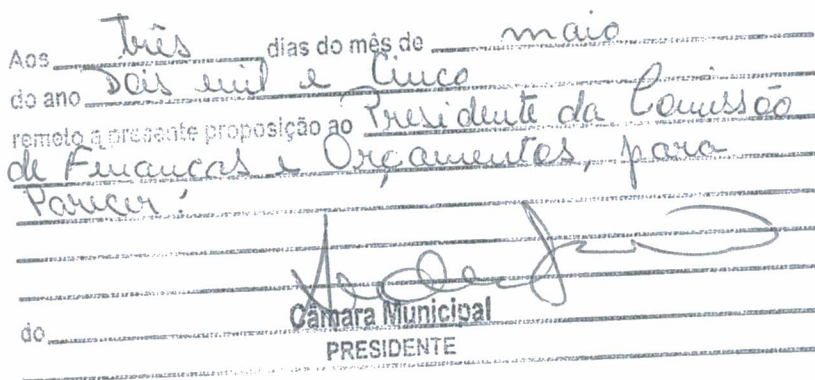 Aos três dias do mês de maio
do ano Dois mil e Cinco
remeto a presente proposição ao Presidente da Comissão
de Finanças e Orçamentos, para
Parecer.
do Câmara Municipal
PRESIDENTE